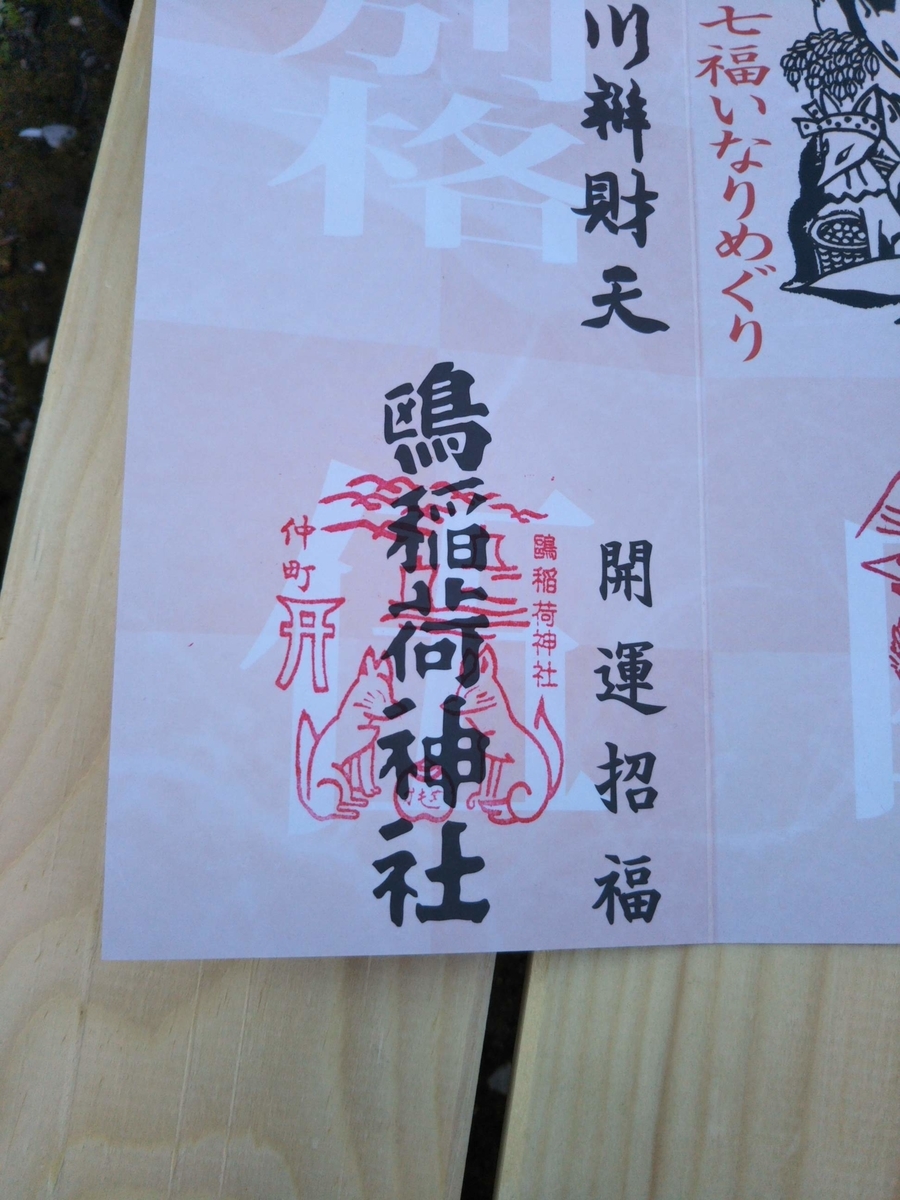 七福いなりめぐり
川辨財天
開運招福
鷗稲荷神社
鴎稲荷神社
仲町
別格